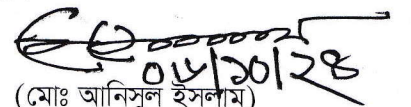 ০৮/১০/২৪
(মোঃ আনিসুল ইসলাম)